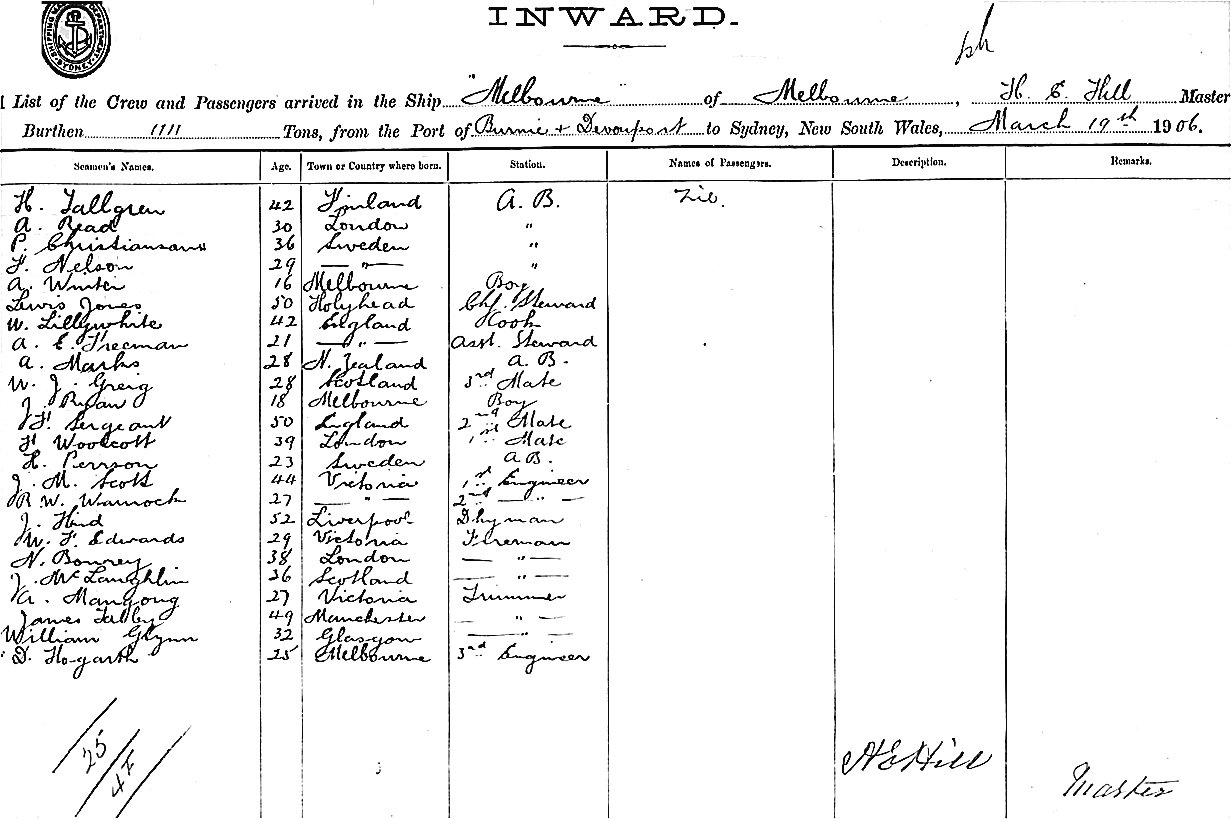 INWARD.
SHIPPING MASTER'S DEPARTMENT SYDNEY
List of the Crew and Passengers arrived in the Ship "Melbourne" of Melbourne, H. E. Hill Master
Burthen 1111 Tons, from the Port of Burnie + Devonport to Sydney, New South Wales, March 19th 1906.
Seamen's Names. Age. Town or Country where born. Station. Names of Passengers. Description. Remarks.
H. Tallgren 42 Finland A. B. Nil.
A. Read 30 London "
P. Christianson 36 Sweden "
F. Nelson 29 — " — "
A. Winter 16 Melbourne Boy
Lewis Jones 50 Holyhead Chf. Steward
W. Lillywhite 42 England Cook
A. E. Freeman 21 — " — Asst. Steward
A. Marks 28 N. Zealand A. B.
W. J. Greig 28 Scotland 3rd Mate
J. Ryan 18 Melbourne Boy
F. Sergeant 50 England 2nd Mate
F. Woodcott 39 London 1st Mate
H. Persson 23 Sweden A B.
J. M. Scott 44 Victoria 1st Engineer
R. W. Warnock 27 — " — 2nd — " —
J. Hind 52 Liverpool Dkyman
W. F. Edwards 29 Victoria Fireman
N. Bonney 38 London — " —
J. McLaughlin 36 Scotland — " —
A. Mangong 27 Victoria Trimmer
James 49 Manchester — " —
William Glynn 32 Glasgow — " —
D. Hogarth 25 Melbourne 3rd Engineer
25
47
H E Hill
Master